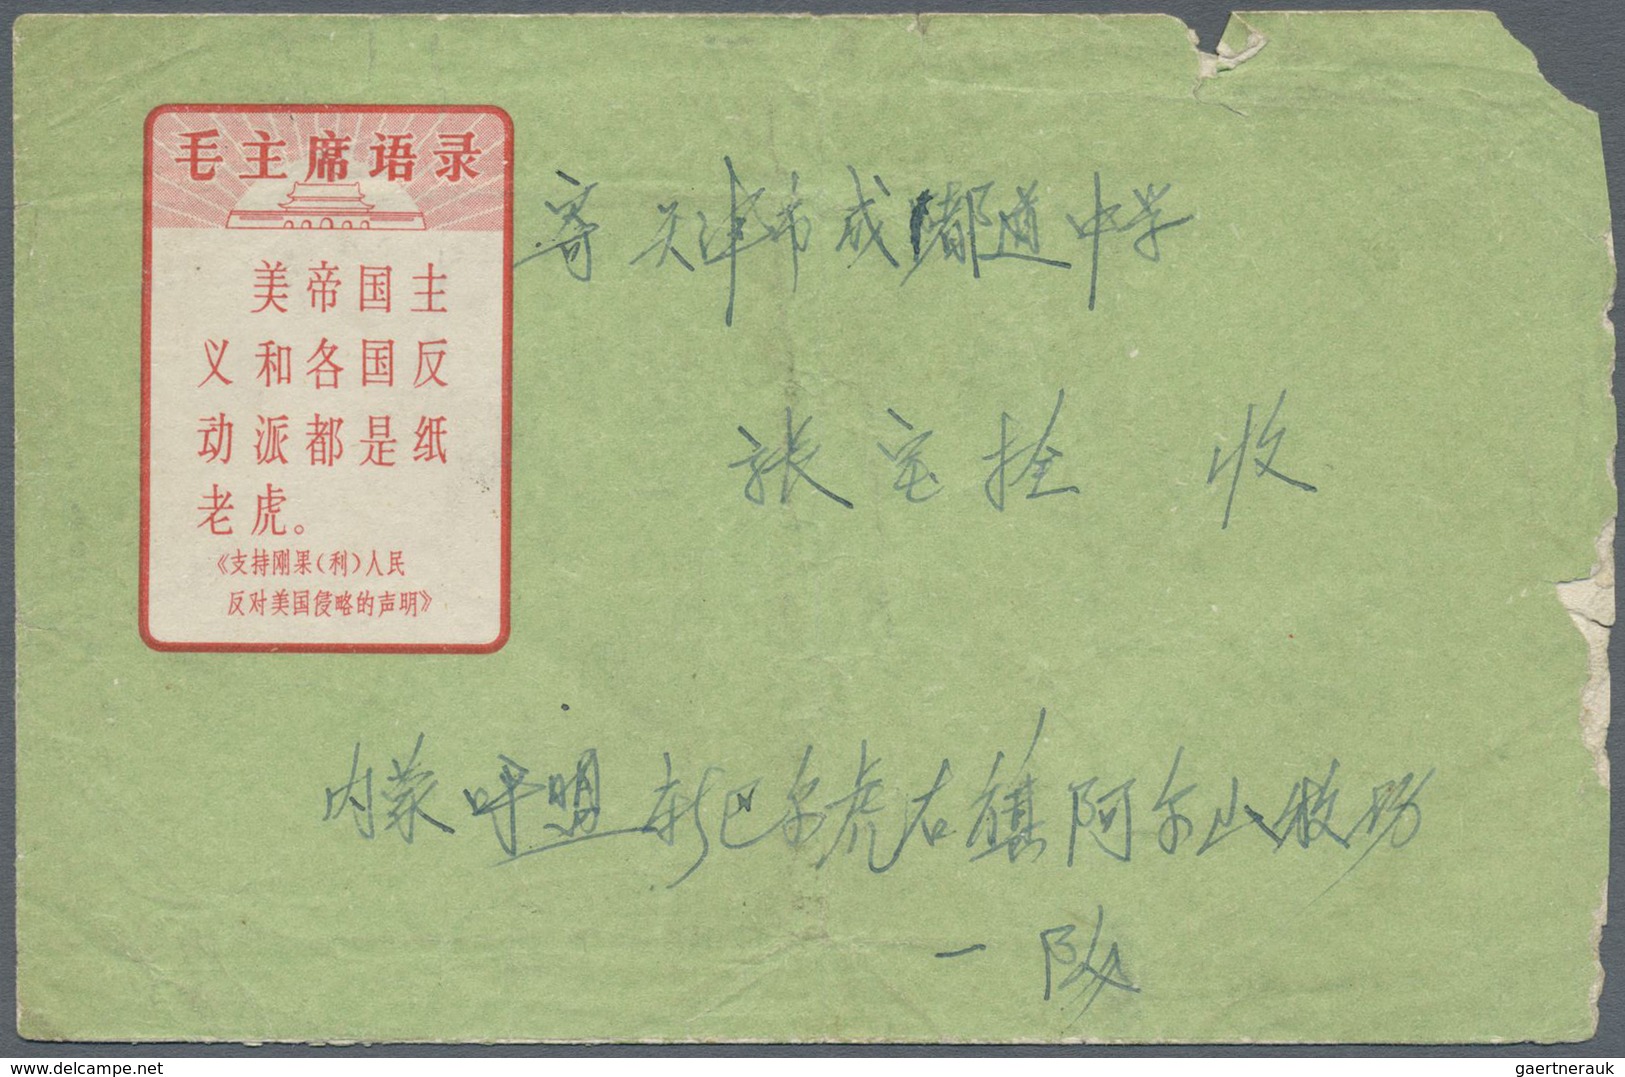 毛主席语录
美帝国主
义和各国反
动派都是纸
老虎。
《支持刚果(利)人民
反对美国侵略的声明》
寄 天津市成都道中学
张宝拴 收
内蒙呼盟新巴尔虎右旗阿尔山牧场
一队
www.delcampe.net
gaertnerauk